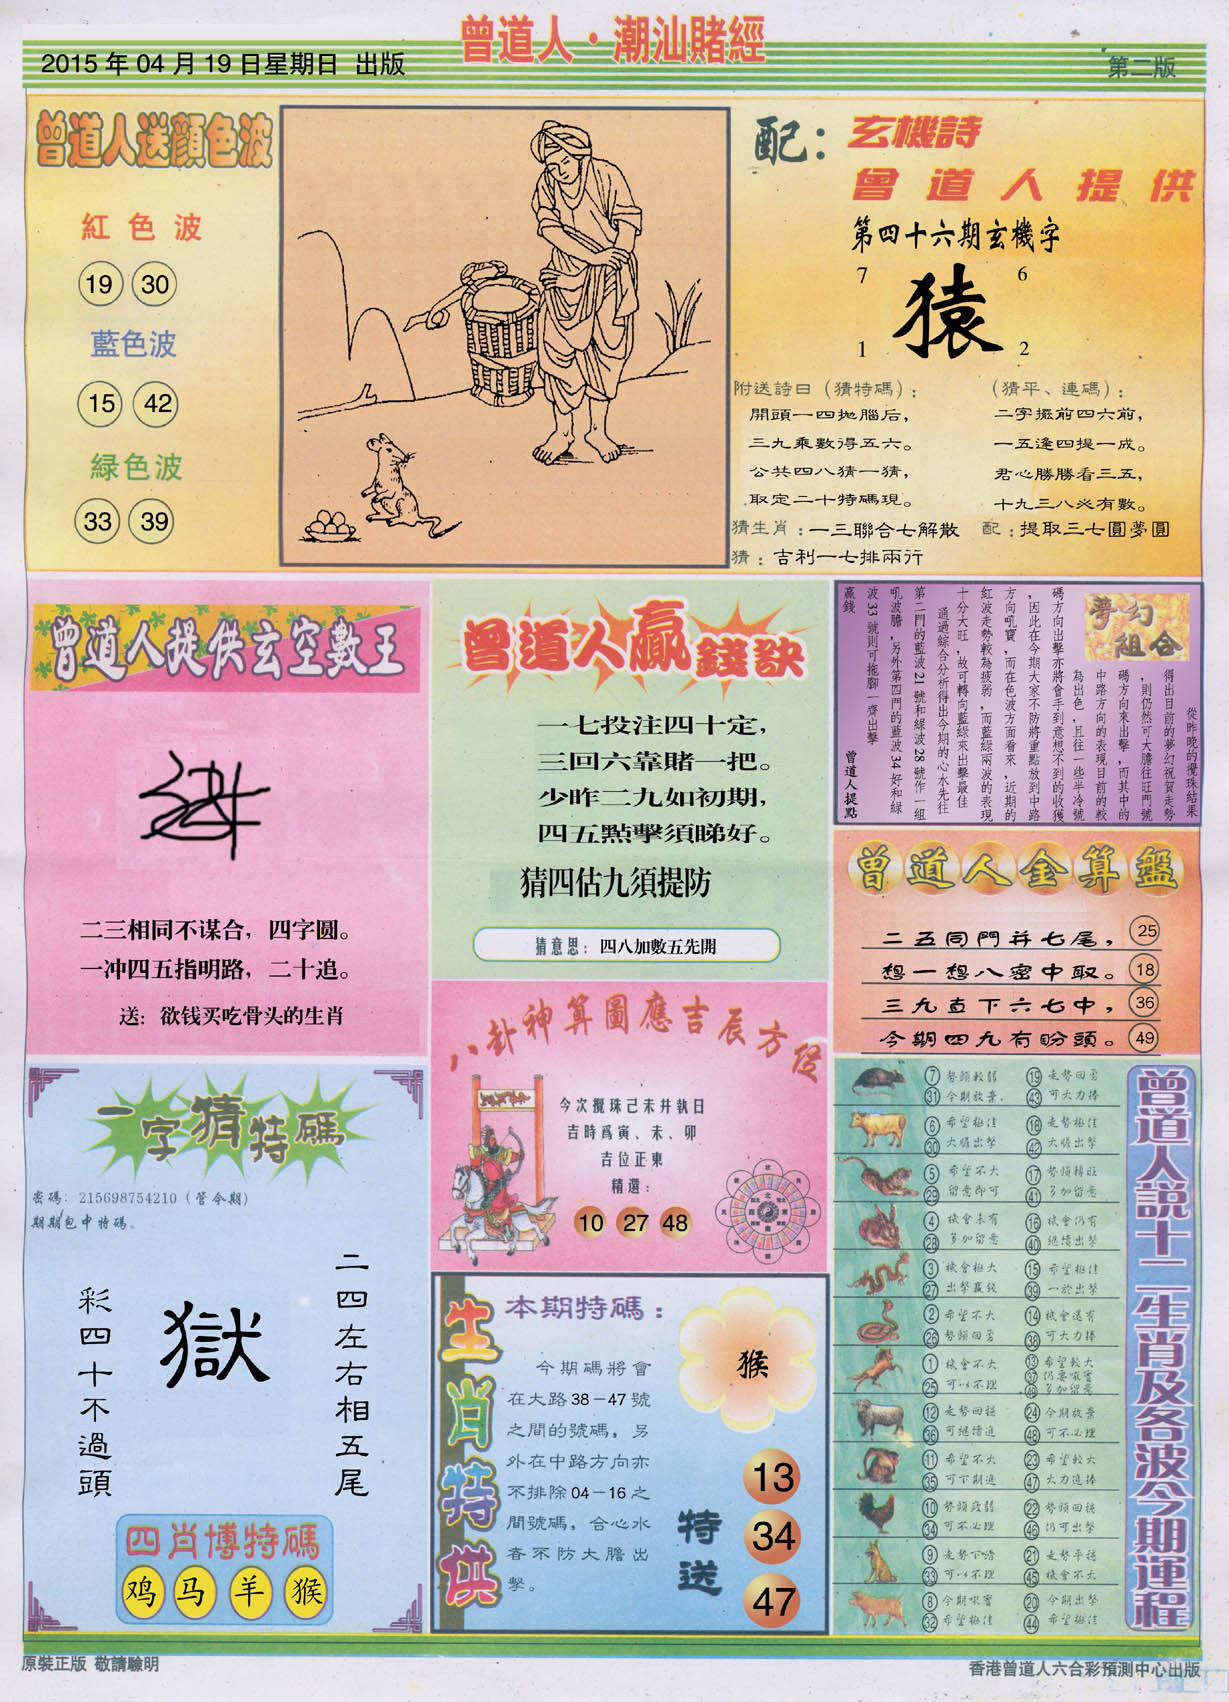 曾道人·潮汕賭經
2015 年 04 月 19 日星期日 出版
第二版
曾道人送顔色波
紅色波
19 30
藍色波
15 42
緑色波
33 39
配：
玄機詩
曾道人提供
第四十六期玄機字
7 6
猿
1 2
附送詩曰（猜特碼）：
開頭一四拋腦后，
三九乘數得五六。
公共四八猜一猜，
取定二十特碼現。
（猜平、連碼）：
二字擺前四六前，
一五逢四提一成。
君心勝勝看三五，
十九三八必有數。
猜生肖：一三聯合七解散
配：提取三七圓夢圓
猜：吉利一七排兩行
曾道人提供玄空數王
二三相同不谋合，四字圆。
一冲四五指明路，二十追。
送：欲钱买吃骨头的生肖
曾道人贏錢訣
一七投注四十定，
三回六靠賭一把。
少昨二九如初期，
四五點擊須睇好。
猜四估九須提防
猜意思：四八加數五先開
夢幻
組合
從昨晚的攪珠結果
得出目前的夢幻祝賀走勢
，則仍然可大膽往旺門號
碼方向來出擊，而其中的
中路方向的表現目前的較
為出色，且往一些半冷號
碼方向出擊亦將會手到意想不到的收獲
，因此在今期大家不防將重點放到中路
方向吼寶，而在色波方面看來，近期的
紅波走勢較為疲弱，而藍綠兩波的表現
十分大旺，故可轉向藍綠來出擊最佳
通過綜合分析得出今期的心水先往
第二門的藍波 21 號和綠波 28 號作一組
吼波膽，另外第四門的藍波 34 好和綠
波 33 號則可拖腳一齊出擊
贏錢
曾道人提點
曾道人金算盤
二五同門并七尾， 25
想一想八密中取。 18
三九直下六七中， 36
今期四九有盼頭。 49
八卦神算圖應吉辰方位
今次攪珠己未井執日
吉時爲寅、未、卯
吉位正東
精選：
10 27 48
一字猜特碼
密碼：215698754210（管令期）
期期包中特碼。
二四左右相五尾
獄
彩四十不過頭
四肖博特碼
鸡 马 羊 猴
生肖特供
本期特碼：
今期碼將會
在大路 38－47 號
之間的號碼，另
外在中路方向亦
不排除 04－16 之
間號碼，合心水
者不防大膽出
擊。
猴
特送
13
34
47
曾道人説十二生肖及各波今期運程
7 勢頭較弱 19 走勢回勇
31 今期放棄 43 可大力捧
6 希望極佳 18 走勢極佳
30 大膽出擊 42 大膽出擊
5 希望不大 17 勢頭轉旺
29 留意即可 41 多加留意
4 機會未有 16 機會仍有
28 多加留意 40 繼續出擊
3 機會極大 15 希望極佳
27 出擊贏錢 39 一於出擊
2 希望不大 14 機會還有
26 勢頭回勇 38 可大力捧
1 機會不大 13 希望較大
25 可以不理 37 仍要吼實
49 多加留意
12 走勢回穩 24 今期放棄
36 可繼續追 48 可不必理
11 希望不大 23 希望較大
35 可下期追 47 大力追捧
10 勢頭疲弱 22 勢頭回穩
34 可不必理 46 仍可出擊
9 走勢下滑 21 走勢平穩
33 可以不理 45 機會不大
8 今期吼實 20 今期出擊
32 希望極佳 44 希望極佳
原裝正版 敬請驗明
香港曾道人六合彩預測中心出版